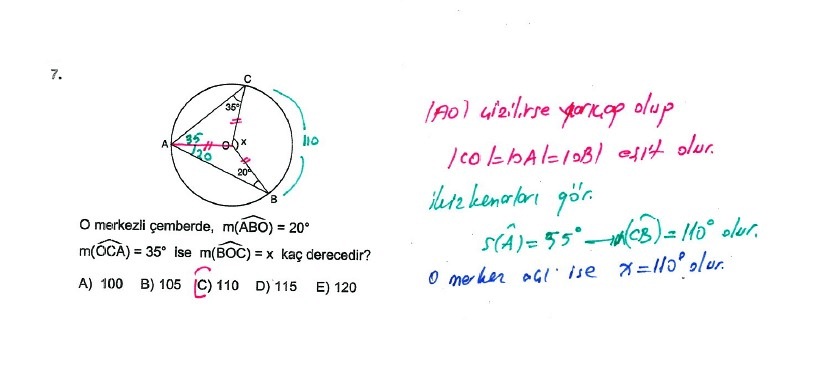 7.
C
35°
A
35
O
x
110
120
20°
B
O merkezli çemberde, m(ABO) = 20°
m(OCA) = 35° ise m(BOC) = x kaç derecedir?
A) 100 B) 105 C) 110 D) 115 E) 120
|AO| çizilirse yarıçap olup
|CO|=|OA|=|OB| eşit olur.
ikizkenarları gör.
S(A) = 55° → m(CB) = 110° olur.
O merkez açı ise x = 110° olur.